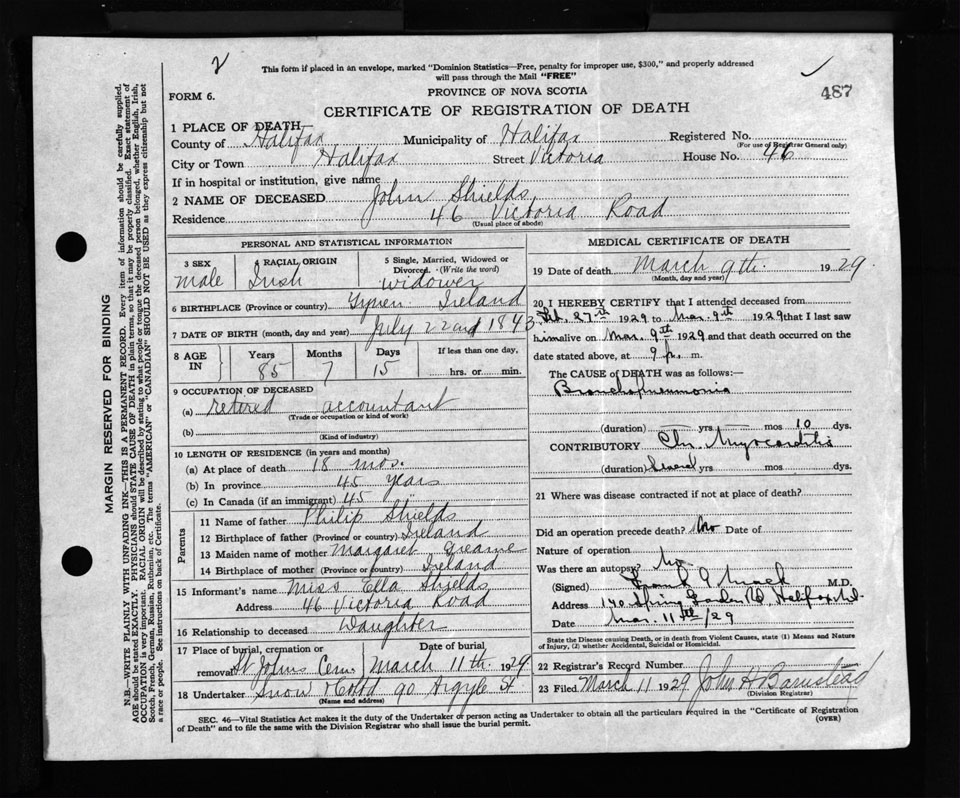 2
This form if placed in an envelope, marked "Dominion Statistics—Free, penalty for improper use, $300," and properly addressed
will pass through the Mail "FREE"
487
FORM 6.
PROVINCE OF NOVA SCOTIA
CERTIFICATE OF REGISTRATION OF DEATH
1 PLACE OF DEATH
County of Halifax Municipality of Halifax Registered No.
(For use of Registrar General only)
City or Town Halifax Street Victoria House No. 46
If in hospital or institution, give name
2 NAME OF DECEASED John Shields
Residence 46 Victoria Road
(Usual place of abode)
PERSONAL AND STATISTICAL INFORMATION
3 SEX 4 RACIAL ORIGIN 5 Single, Married, Widowed or Divorced. (Write the word)
Male Irish widower
6 BIRTHPLACE (Province or country) Ireland
7 DATE OF BIRTH (month, day and year) July 22nd 1843
8 AGE IN Years Months Days If less than one day,
85 7 15 hrs. or min.
9 OCCUPATION OF DECEASED
(a) retired accountant
(Trade or occupation or kind of work)
(b)
(Kind of industry)
10 LENGTH OF RESIDENCE (in years and months)
(a) At place of death 18 mos.
(b) In province 45 years
(c) In Canada (if an immigrant) 45
Parents
11 Name of father Philip Shields
12 Birthplace of father (Province or country) Ireland
13 Maiden name of mother Margaret
14 Birthplace of mother (Province or country) Ireland
15 Informant's name Miss Ella Shields
Address 46 Victoria Road
16 Relationship to deceased Daughter
17 Place of burial, cremation or removal Date of burial
St Johns Cem March 11th 1929
18 Undertaker Snow & Co Ltd 90 Argyle St
(Name and address)
MEDICAL CERTIFICATE OF DEATH
19 Date of death March 9th. 1929.
(Month, day and year)
20 I HEREBY CERTIFY that I attended deceased from
Feb. 27th 1929 to Mar. 9th 1929 that I last saw
him alive on Mar. 9th 1929 and that death occurred on the
date stated above, at 9 p. m.
The CAUSE OF DEATH was as follows:
Bronchopneumonia
(duration) yrs mos 10 dys.
CONTRIBUTORY Chr. Myocarditis
(duration) Several yrs mos dys.
21 Where was disease contracted if not at place of death?
Did an operation precede death? No Date of
Nature of operation
Was there an autopsy? No
(Signed) Frank G Mack M.D.
Address 140 Spring Garden Rd Halifax
Date Mar. 11th/29
State the Disease causing Death, or in death from Violent Causes, state (1) Means and Nature
of Injury, (2) whether Accidental, Suicidal or Homicidal.
22 Registrar's Record Number
23 Filed March 11 1929 John H Barnstead
(Division Registrar)
SEC. 46—Vital Statistics Act makes it the duty of the Undertaker or person acting as Undertaker to obtain all the particulars required in the "Certificate of Registration
of Death" and to file the same with the Division Registrar who shall issue the burial permit.
(OVER)
MARGIN RESERVED FOR BINDING
N.B.—WRITE PLAINLY WITH UNFADING INK—THIS IS A PERMANENT RECORD. Every item of information should be carefully supplied.
AGE should be stated EXACTLY. PHYSICIANS should STATE CAUSE OF DEATH in plain terms, so that it may be properly classified. Exact statement of
OCCUPATION is very important. RACIAL ORIGIN will be described by stating to what people or tongue the deceased person belonged, whether English, Irish,
Scotch, French, German, Russian, Ruthenian, etc. The terms "AMERICAN" or "CANADIAN" SHOULD NOT BE USED as they express citizenship but not
a race or people. See instructions on back of Certificate.